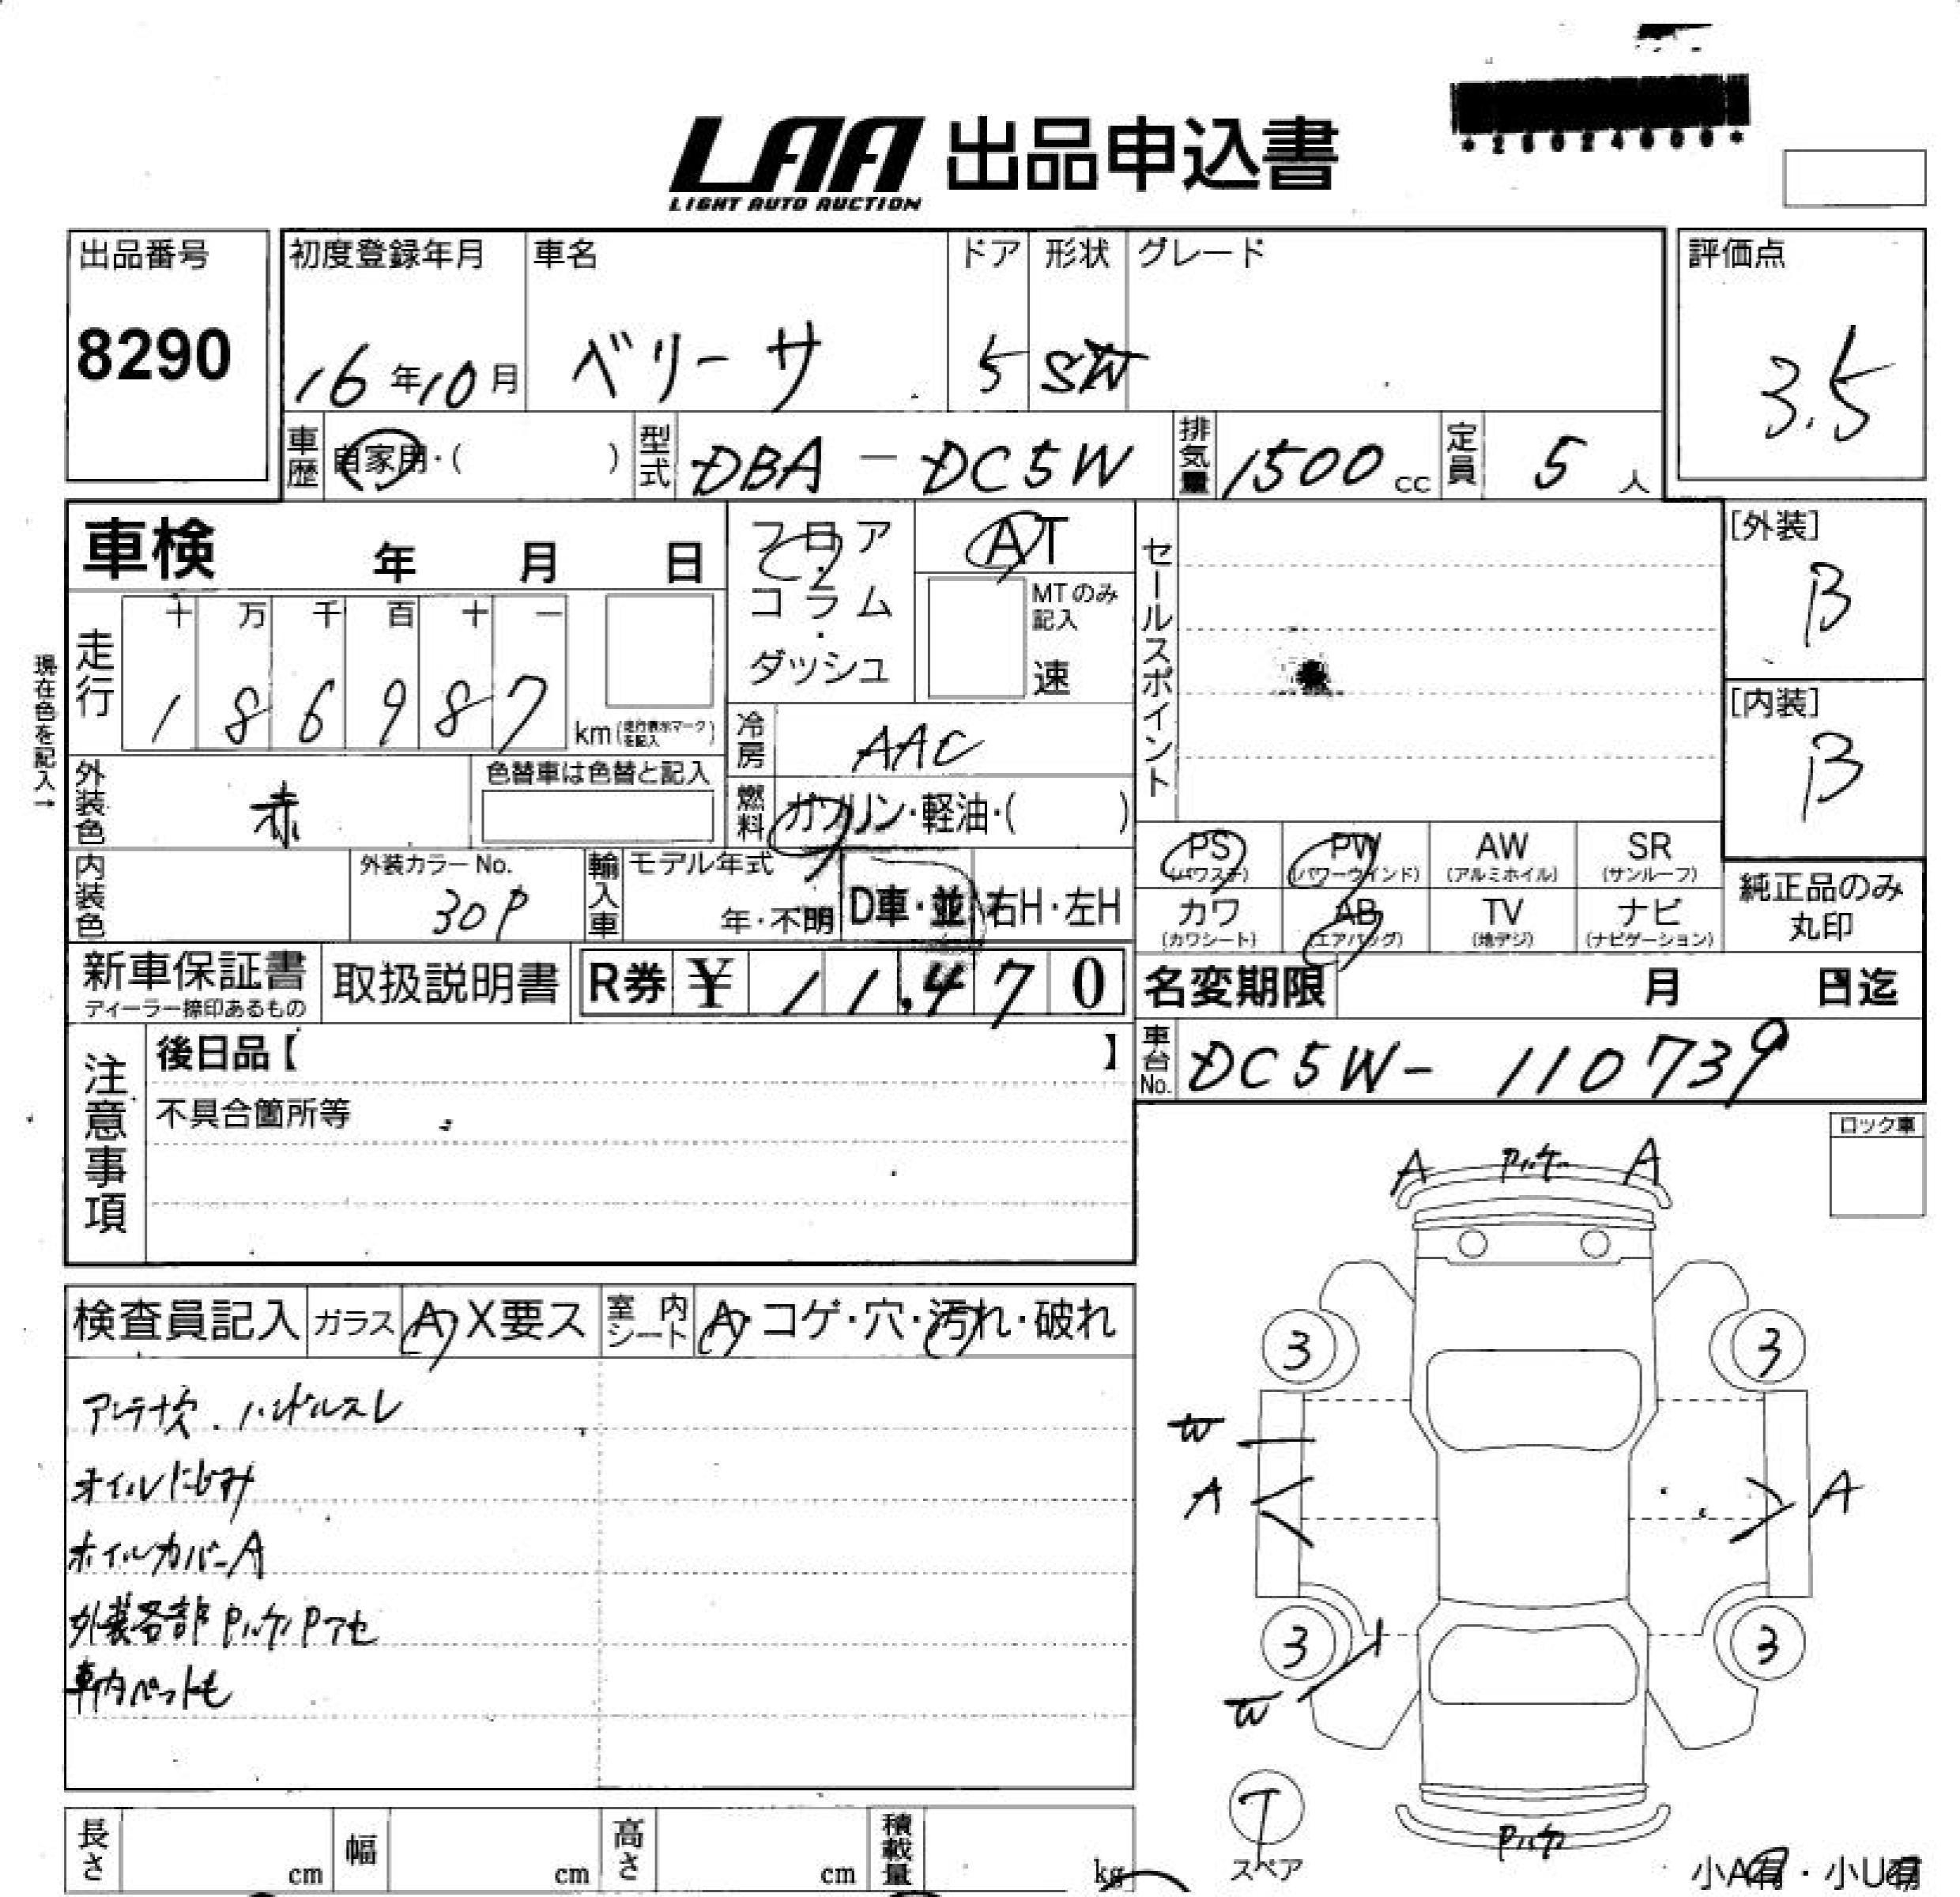 LAA 出品申込書
LIGHT AUTO AUCTION
出品番号
8290
初度登録年月
16年10月
車名
ベリーサ
ドア
5
形状
SW
グレード
評価点
3.5
車歴 自家用・( )
型式 DBA - DC5W
排気量 1500 cc
定員 5 人
車検 年 月 日
フロア・コラム・ダッシュ
AT
MTのみ記入
速
セールスポイント
[外装]
B
[内装]
B
現在色を記入→
走行
十 万 千 百 十 一
1 8 6 9 8 7
km (走行表示マークを記入)
冷房 AAC
外装色 赤
色替車は色替と記入
燃料 ガソリン・軽油・( )
内装色
外装カラーNo.
30P
輸入車
モデル年式
年・不明
D車・並 右H・左H
PS (パワステ)
PW (パワーウインド)
AW (アルミホイル)
SR (サンルーフ)
カワ (カワシート)
AB (エアバッグ)
TV (地デジ)
ナビ (ナビゲーション)
純正品のみ
丸印
新車保証書
ディーラー捺印あるもの
取扱説明書
R券 ¥ 11,470
名変期限 月 日迄
注意事項
後日品【 】
不具合箇所等
車台No. DC5W- 110739
ロック車
検査員記入 ガラス A X要ス
室内シート A・コゲ・穴・汚れ・破れ
アンテナ欠. ハンドルスレ
オイルにじみ
ホイルカバーA
外装各部 Pハゲ Pアセ
車内ペット毛
A Pハゲ A
3 3
W
A A
3 3
W
T
スペア
Pハゲ
小A有・小U有
長さ cm
幅 cm
高さ cm
積載量 kg